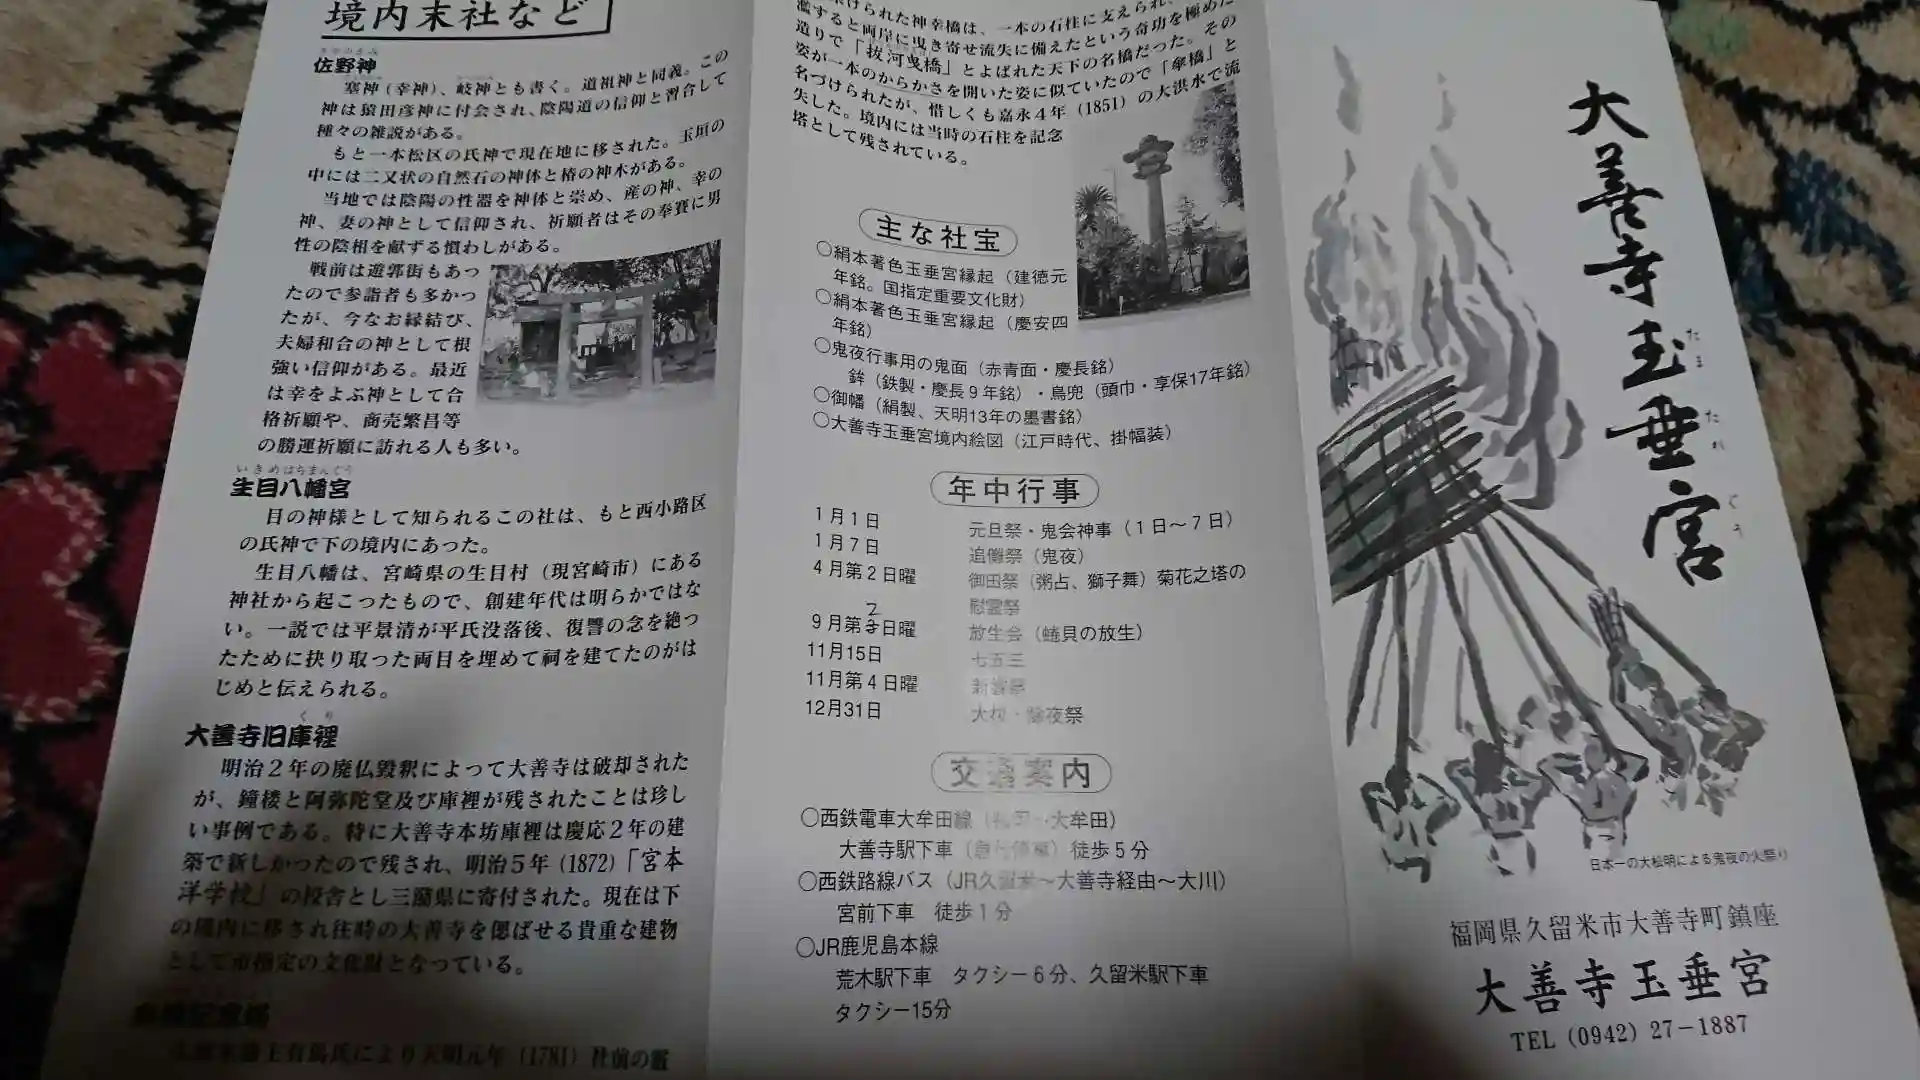 境内末社など
さやのかみ
佐野神
塞神(幸神)、岐神とも書く。道祖神と同義。この
神は猿田彦神に付会され、陰陽道の信仰と習合して
種々の雑説がある。
もと一本松区の氏神で現在地に移された。玉垣の
中には二又状の自然石の神体と椿の神木がある。
当地では陰陽の性器を神体と崇め、産の神、幸の
神、妻の神として信仰され、祈願者はその奉賽に男
性の陰相を献ずる慣わしがある。
戦前は遊郭街もあっ
たので参詣者も多かっ
たが、今なお縁結び、
夫婦和合の神として根
強い信仰がある。最近
は幸をよぶ神として合
格祈願や、商売繁昌等
の勝運祈願に訪れる人も多い。
いきめはちまんぐう
生目八幡宮
目の神様として知られるこの社は、もと西小路区
の氏神で下の境内にあった。
生目八幡は、宮崎県の生目村(現宮崎市)にある
神社から起こったもので、創建年代は明らかではな
い。一説では平景清が平氏没落後、復讐の念を絶っ
たために抉り取った両目を埋めて祠を建てたのがは
じめと伝えられる。
くり
大善寺旧庫裡
明治2年の廃仏毀釈によって大善寺は破却された
が、鐘楼と阿弥陀堂及び庫裡が残されたことは珍し
い事例である。特に大善寺本坊庫裡は慶応2年の建
築で新しかったので残され、明治5年(1872)「宮本
洋学校」の校舎とし三潴県に寄付された。現在は下
の境内に移され往時の大善寺を偲ばせる貴重な建物
として市指定の文化財となっている。
傘橋記念塔
久留米藩主有馬氏により天明元年(1781)社前の霰
架けられた神幸橋は、一本の石柱に支えられ、
濫すると両岸に曳き寄せ流失に備えたという奇功を極めた
造りで「抜河曳橋」とよばれた天下の名橋だった。その
姿が一本のからかさを開いた姿に似ていたので「傘橋」と
名づけられたが、惜しくも嘉永4年(1851)の大洪水で流
失した。境内には当時の石柱を記念
塔として残されている。
主な社宝
○絹本著色玉垂宮縁起(建徳元
年銘。国指定重要文化財)
○絹本著色玉垂宮縁起(慶安四
年銘)
○鬼夜行事用の鬼面(赤青面・慶長銘)
鉾(鉄製・慶長9年銘)・鳥兜(頭巾・享保17年銘)
○御幡(絹製、天明13年の墨書銘)
○大善寺玉垂宮境内絵図(江戸時代、掛幅装)
年中行事
1月1日 元旦祭・鬼会神事(1日~7日)
1月7日 追儺祭(鬼夜)
4月第2日曜 御田祭(粥占、獅子舞)菊花之塔の
慰霊祭
2
9月第3日曜 放生会(蜷貝の放生)
11月15日 七五三
11月第4日曜 新嘗祭
12月31日 大祓・除夜祭
交通案内
○西鉄電車大牟田線(福岡~大牟田)
大善寺駅下車(急行停車)徒歩5分
○西鉄路線バス(JR久留米~大善寺経由~大川)
宮前下車 徒歩1分
○JR鹿児島本線
荒木駅下車 タクシー6分、久留米駅下車
タクシー15分
大善寺玉垂宮
たまたれぐう
日本一の大松明による鬼夜の火祭り
福岡県久留米市大善寺町鎮座
大善寺玉垂宮
TEL (0942) 27-1887